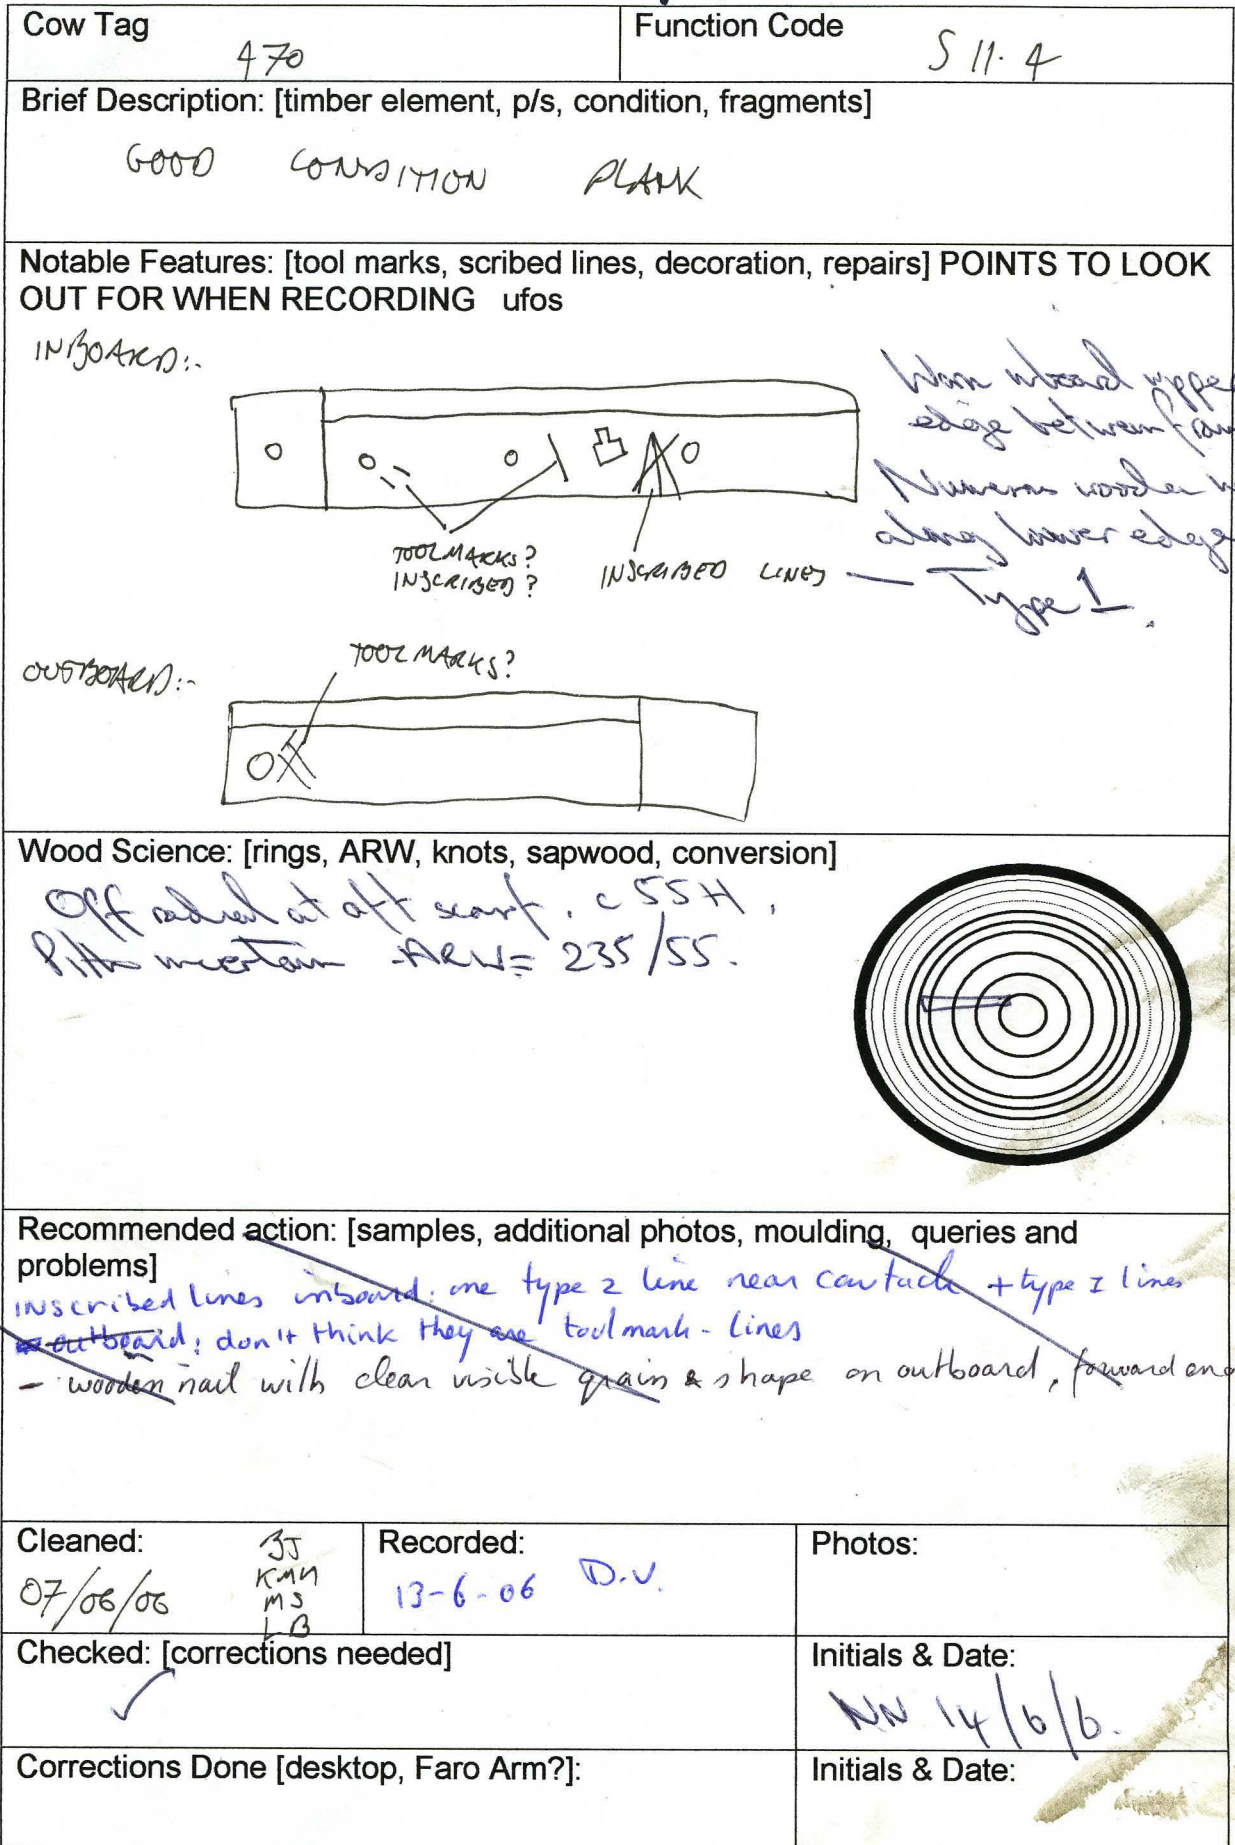 Cow Tag
470
Function Code
S 11.4
Brief Description: [timber element, p/s, condition, fragments]
GOOD CONDITION PLANK
Notable Features: [tool marks, scribed lines, decoration, repairs] POINTS TO LOOK
OUT FOR WHEN RECORDING ufos
INBOARD:-
Worn inboard uppe
edge between fra
Numerous wooden
along lower edge
— Type 1
TOOLMARKS?
INSCRIBED?
INSCRIBED LINES
OUTBOARD:-
TOOLMARKS?
Wood Science: [rings, ARW, knots, sapwood, conversion]
Off radial at aft scarf. c 55H,
Pith uncertain ARW= 235/55.
Recommended action: [samples, additional photos, moulding, queries and
problems]
inscribed lines inboard: one type 2 line near cowtack + type I lines
outboard; don't think they are toolmark - lines
- wooden nail with clear visible grain & shape on outboard, forward end
Cleaned:
07/06/06
BJ
KMH
MS
LB
Recorded:
13-6-06 D.V.
Photos:
Checked: [corrections needed]
✓
Initials & Date:
NN 14/6/6.
Corrections Done [desktop, Faro Arm?]:
Initials & Date: